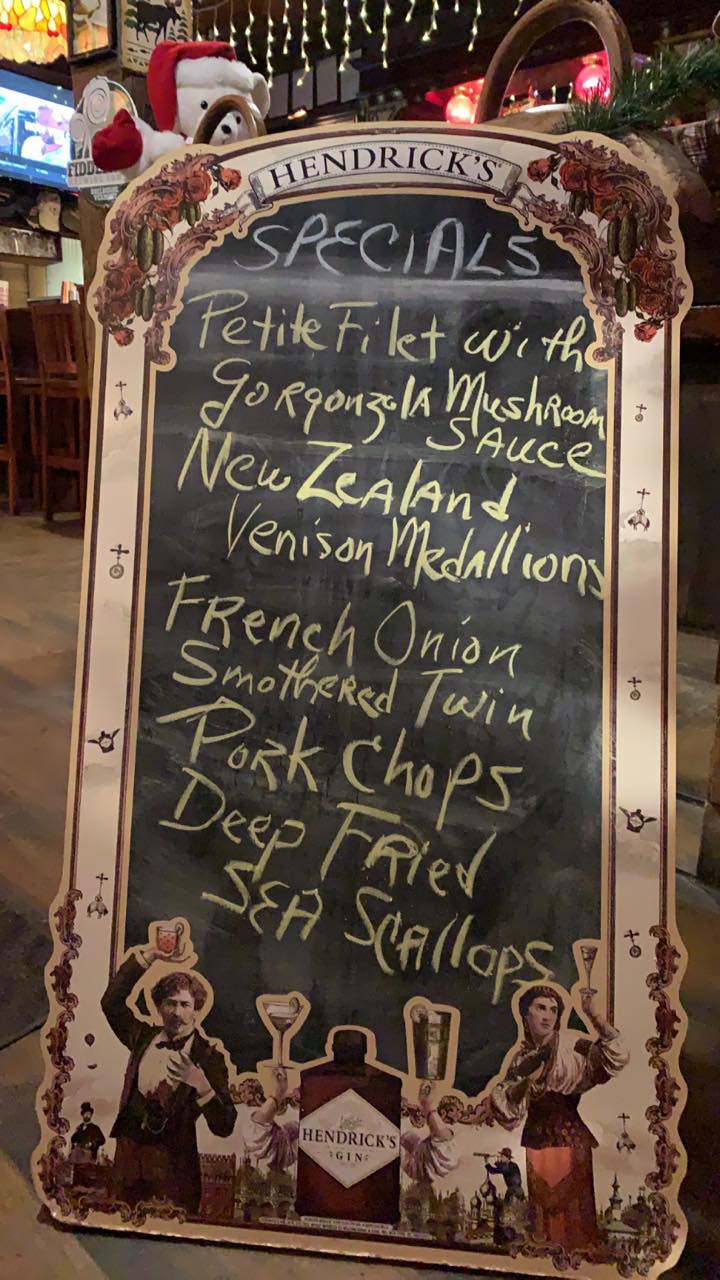 HENDRICK'S
SPECIALS
Petite Filet with
Gorgonzola Mushroom
Sauce
New Zealand
Venison Medallions
French Onion
Smothered Twin
Pork Chops
Deep Fried
Sea Scallops
HENDRICK'S
GIN